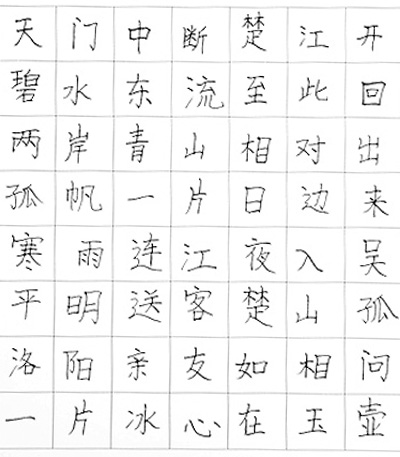 天门中断楚江开
碧水东流至此回
两岸青山相对出
孤帆一片日边来
寒雨连江夜入吴
平明送客楚山孤
洛阳亲友如相问
一片冰心在玉壶